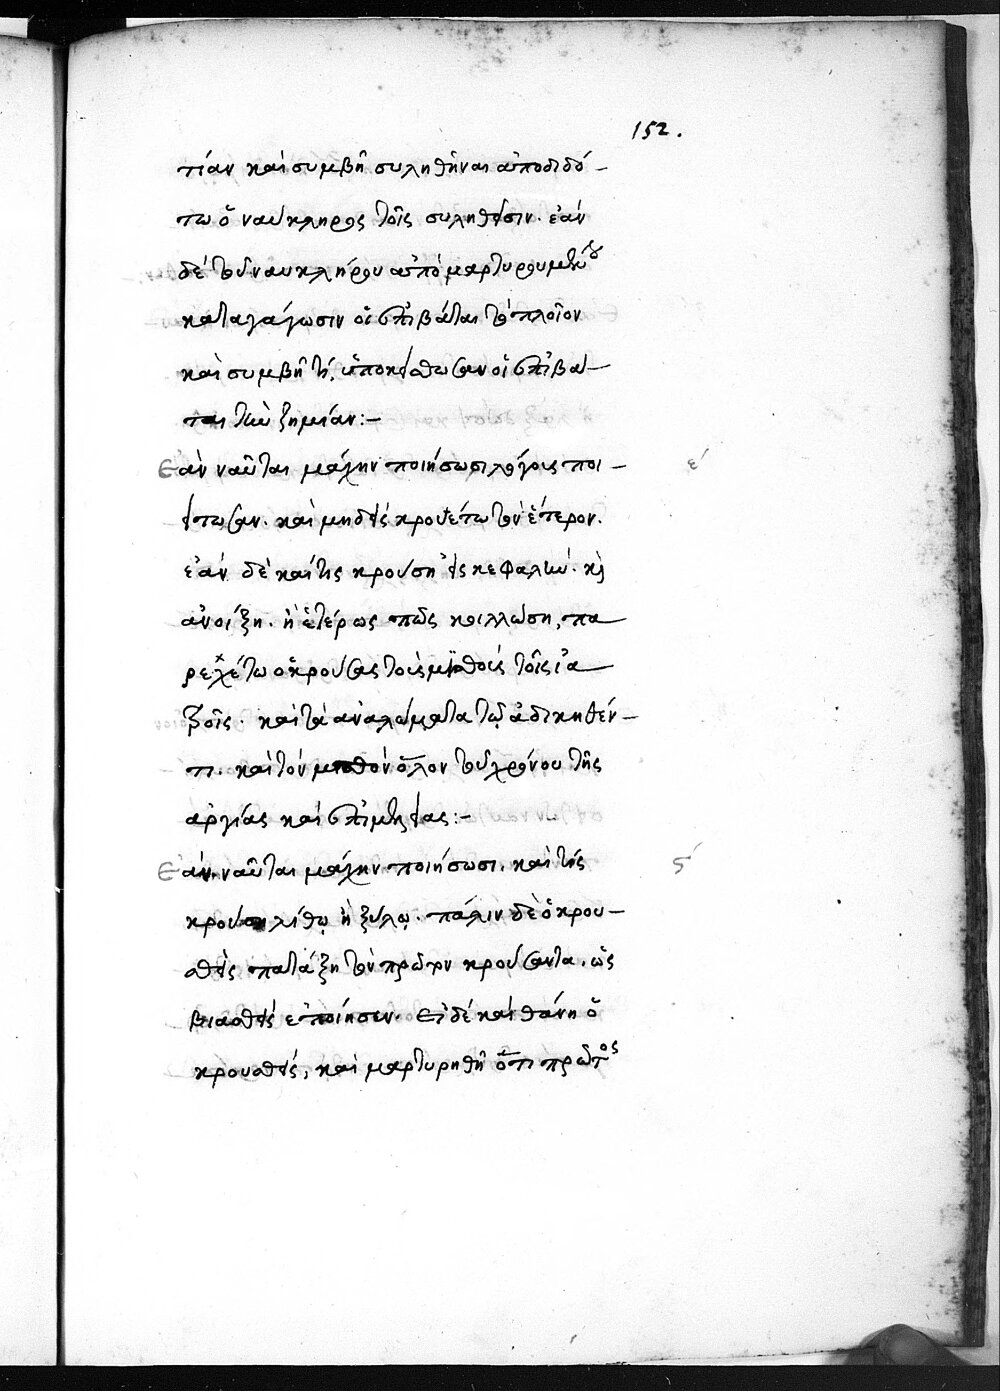 152.
τίαν καὶ συμβῆ συληθῆναι ἀποδιδό-
τω ὁ ναύκληρος τοῖς συληθεῖσιν· ἐὰν
δὲ τοῦ ναυκλήρου ἀπομαρτυρουμένου
καταγάγωσιν οἱ ἐπιβάται τὸ πλοῖον
καὶ συμβῆ τί, ὑποκείσθωσαν οἱ ἐπιβά-
ται τὴν ζημίαν:-
Ἐὰν ναῦται μάχην ποιήσωσι λόγοις ποι-
είτωσαν· καὶ μηδεὶς κρουέτω τὸν ἕτερον.
ε´
ἐὰν δὲ καί τις κρούση εἰς κεφαλήν· κὶ
ἀνοίξη· ἢ ἑτέρως πῶς κυλλώση, πα
ρεχέτω ὁ κρούσας τοὺς μισθοὺς τοῖς ἰα
τροῖς· καὶ τὰ ἀναλώματα τῷ ἀδικηθέν-
τι· καὶ τὸν μισθὸν ὅλον τοῦ χρόνου τῆς
ἀργίας καὶ ἐπιμελείας:-
Ἐὰν ναῦται μάχην ποιήσωσι· καὶ τίς
ς´
κρούση λίθῳ ἢ ξύλῳ· πάλιν δὲ ὁ κρου-
σθεὶς πατάξη τὸν πρῶτον κρούσαντα, ὡς
βιασθεὶς ἐποίησεν· Εἰ δὲ καὶ θάνη ὁ
κρουσθεὶς, καὶ μαρτυρηθῆ ὅτι πρῶτος